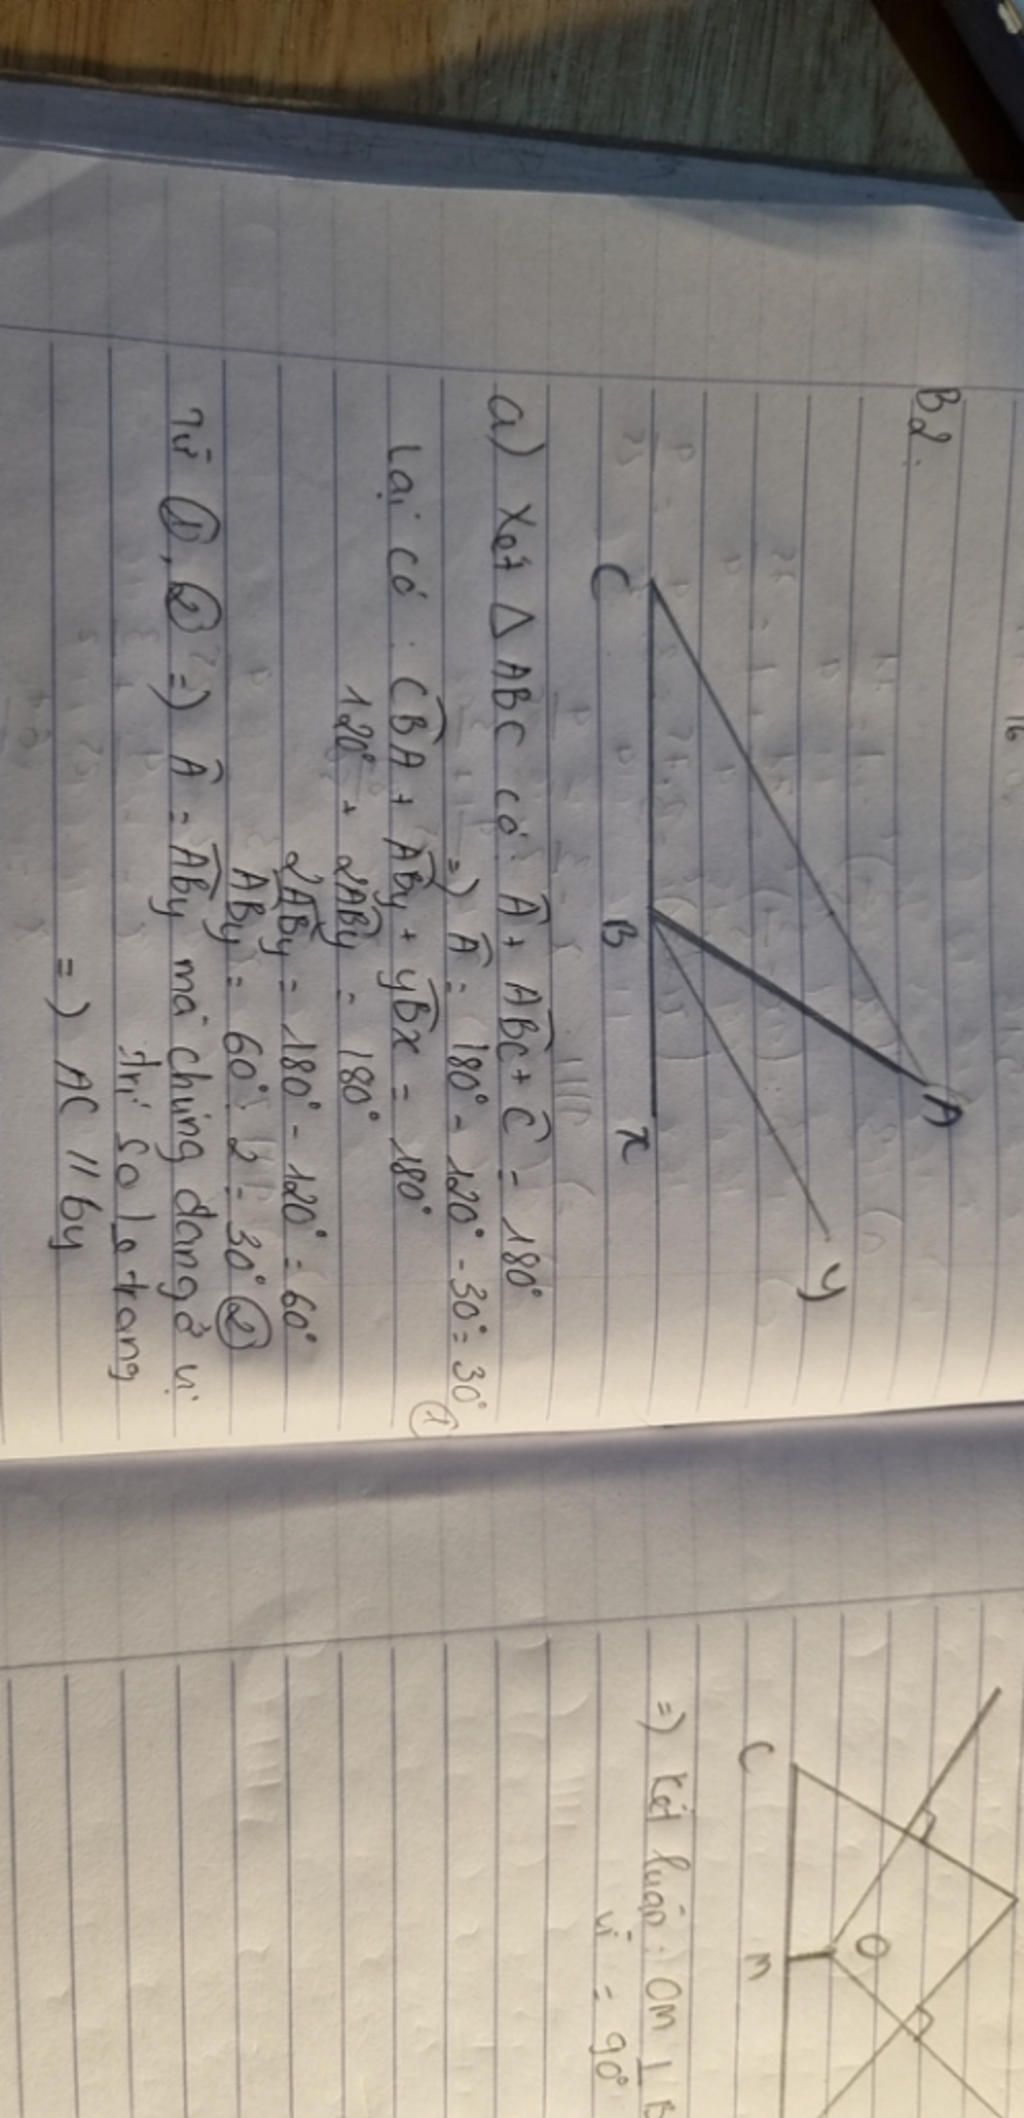 B2.
A
y
C
B
x
a) Xét Δ ABC có: Â + ABC + Ĉ = 180°
=) Â = 180° - 120° - 30° = 30° ①
Lại có: CBA + ABy + yBx = 180°
120° + 2ABy = 180°
2ABy = 180° - 120° = 60°
ABy = 60° : 2 = 30° ②
Từ ①, ② =) Â = ABy mà chúng đang ở vị
trí so le trong
=) AC // By
16
C
O
M
=) Kết luận: OM ⊥ B
vì = 90°